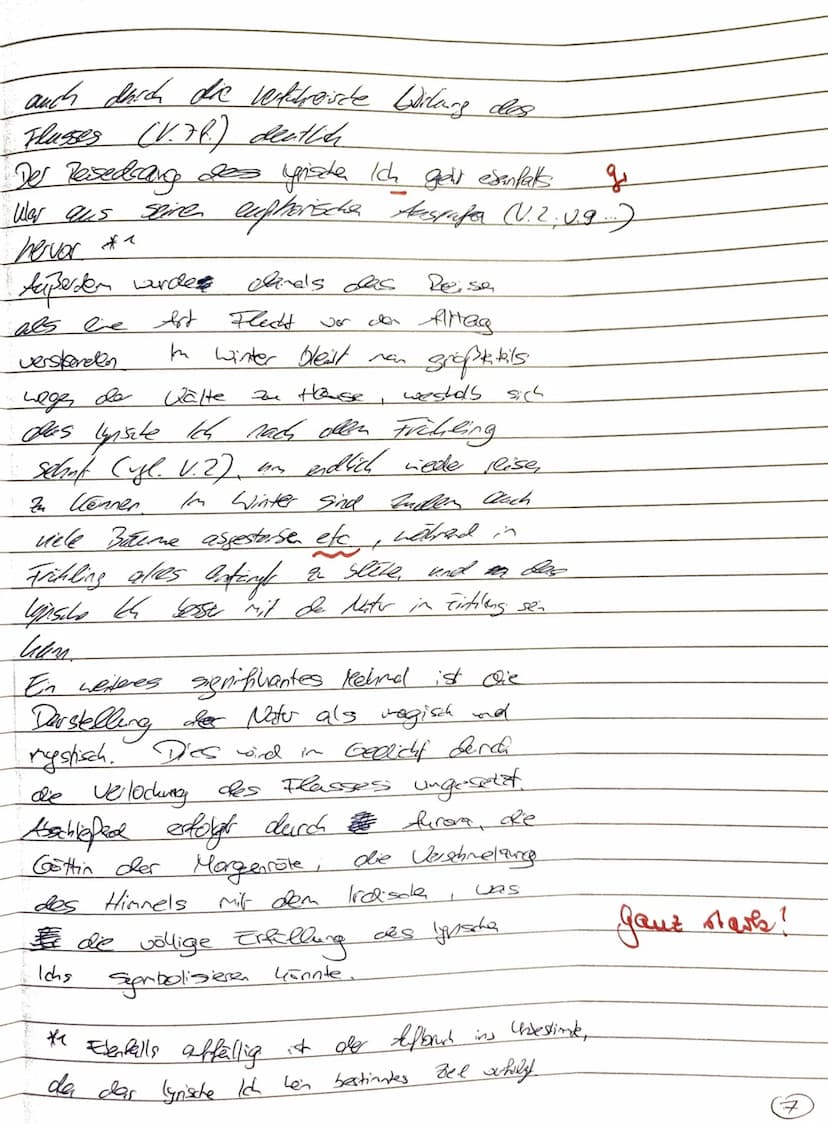 auch durch die verführerische Wirkung des
Flusses (V. 7f.) deutlich
Der Reisedrang des lyrischen Ich geht ebenfalls g
klar aus seinen euphorischen Ausrufen (V.2, V.9 ...)
hervor *1
Außerdem wurde damals das Reisen
als eine Art Flucht vor dem Alltag
verstanden. Im Winter bleibt man größtenteils
wegen der Kälte zu Hause, weshalb sich
das lyrische Ich nach dem Frühling
sehnt (vgl. V.2), um endlich wieder reisen
zu können. Im Winter sind zudem auch
viele Bäume abgestorben etc, während im
Frühling alles anfängt zu blühen und das
lyrische Ich besser mit der Natur im Einklang sein
kann.
Ein weiteres signifikantes Merkmal ist die
Darstellung der Natur als magisch und
mystisch. Dies wird im Gedicht durch
die Verlockung des Flusses umgesetzt.
Abschließend erfolgt durch Aurora, die
Göttin der Morgenröte, die Verschmelzung
des Himmels mit dem Irdischen, was
die völlige Erfüllung des lyrischen
Ichs symbolisieren könnte.
ganz stark!
*1 Ebenfalls auffällig ist der Aufbruch ins Unbestimmte,
da das lyrische Ich kein bestimmtes Ziel
7